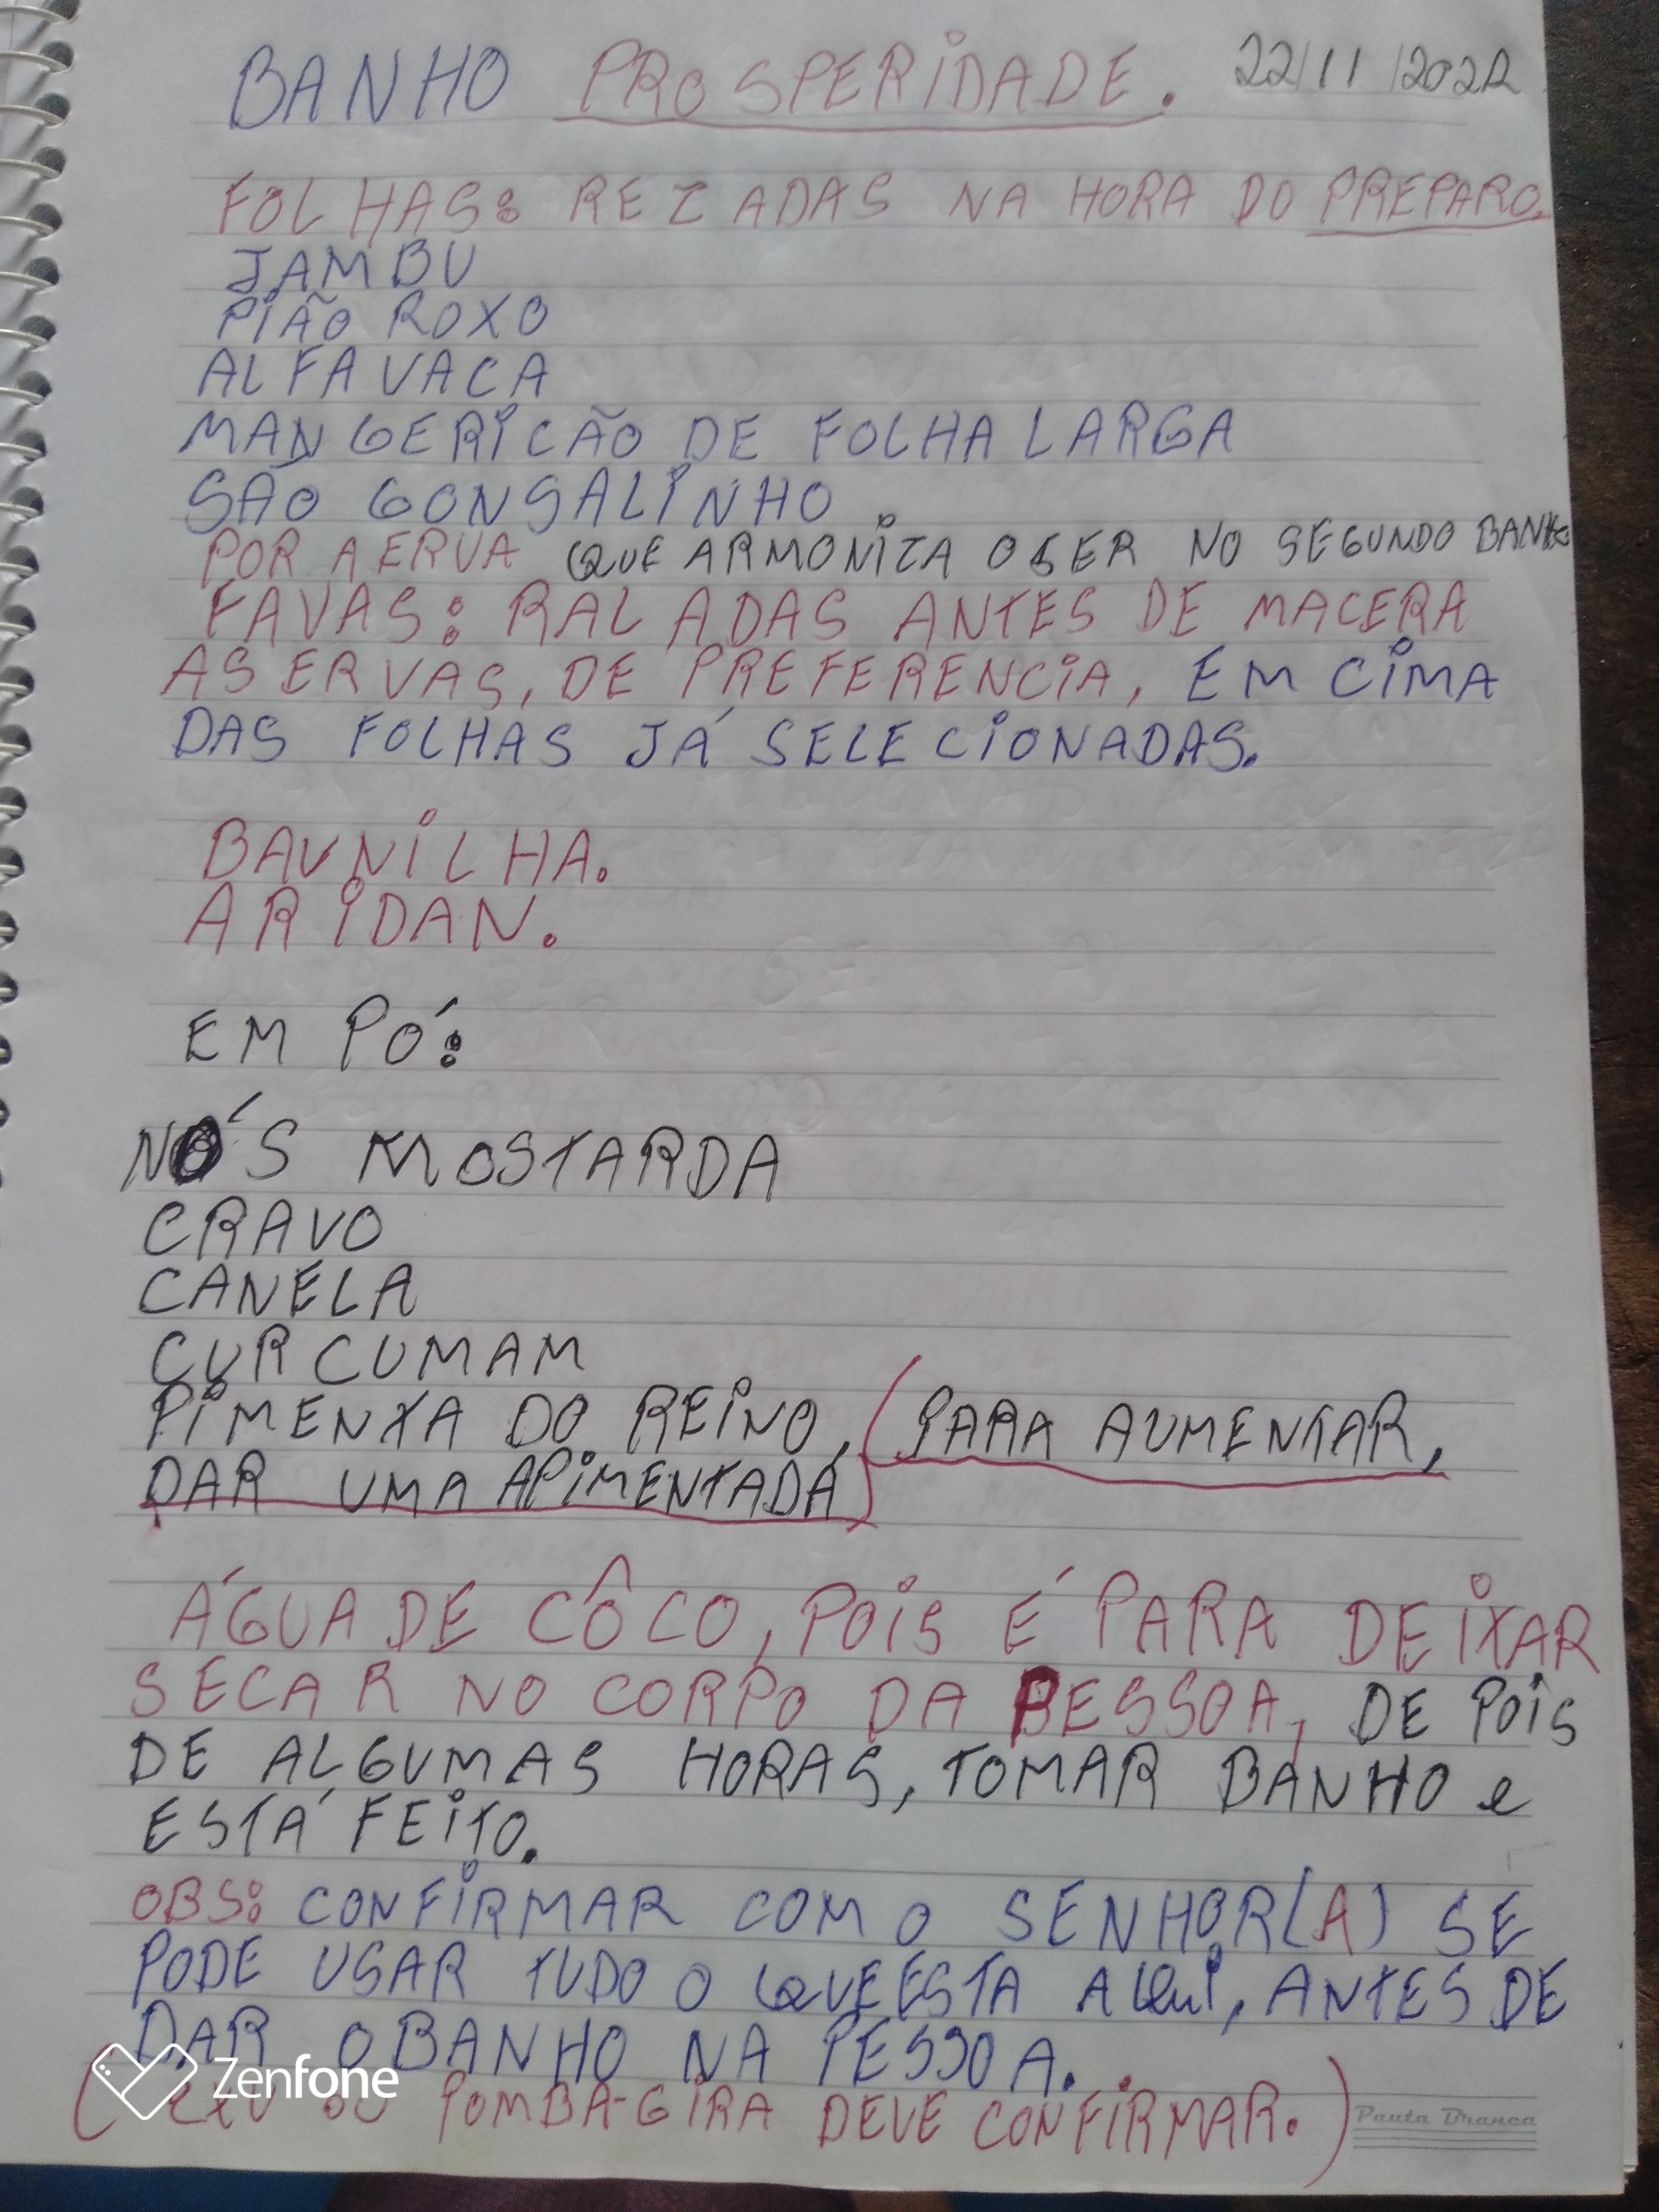 BANHO PROSPERIDADE. 22/11/2022
FOLHAS: REZADAS NA HORA DO PREPARO.
JAMBU
PIÃO ROXO
ALFAVACA
MANGERICÃO DE FOLHA LARGA
SÃO GONSALINHO.
POR A ERVA QUE ARMONIZA O SER NO SEGUNDO BANHO
FAVAS: RALADAS ANTES DE MACERA
AS ERVAS, DE PREFERENCIA, EM CIMA
DAS FOLHAS JÁ SELECIONADAS.
BAUNILHA.
ARIDAN.
EM PÓ:
NÓS MOSTARDA
CRAVO
CANELA
CURCUMAM
PIMENTA DO REINO, (PARA AUMENTAR,
DAR UMA APIMENTADA)
ÁGUA DE CÔCO, POIS É PARA DEIXAR
SECAR NO CORPO DA PESSOA, DE POIS
DE ALGUMAS HORAS, TOMAR BANHO e
ESTÁ FEITO.
OBS: CONFIRMAR COM O SENHOR(A) SE
PODE USAR TUDO O QUE ESTA AQui, ANTES DE
DAR O BANHO NA PESSOA.
(EXU OU POMBA-GIRA DEVE CONFIRMAR.)
Zenfone
Pauta Branca